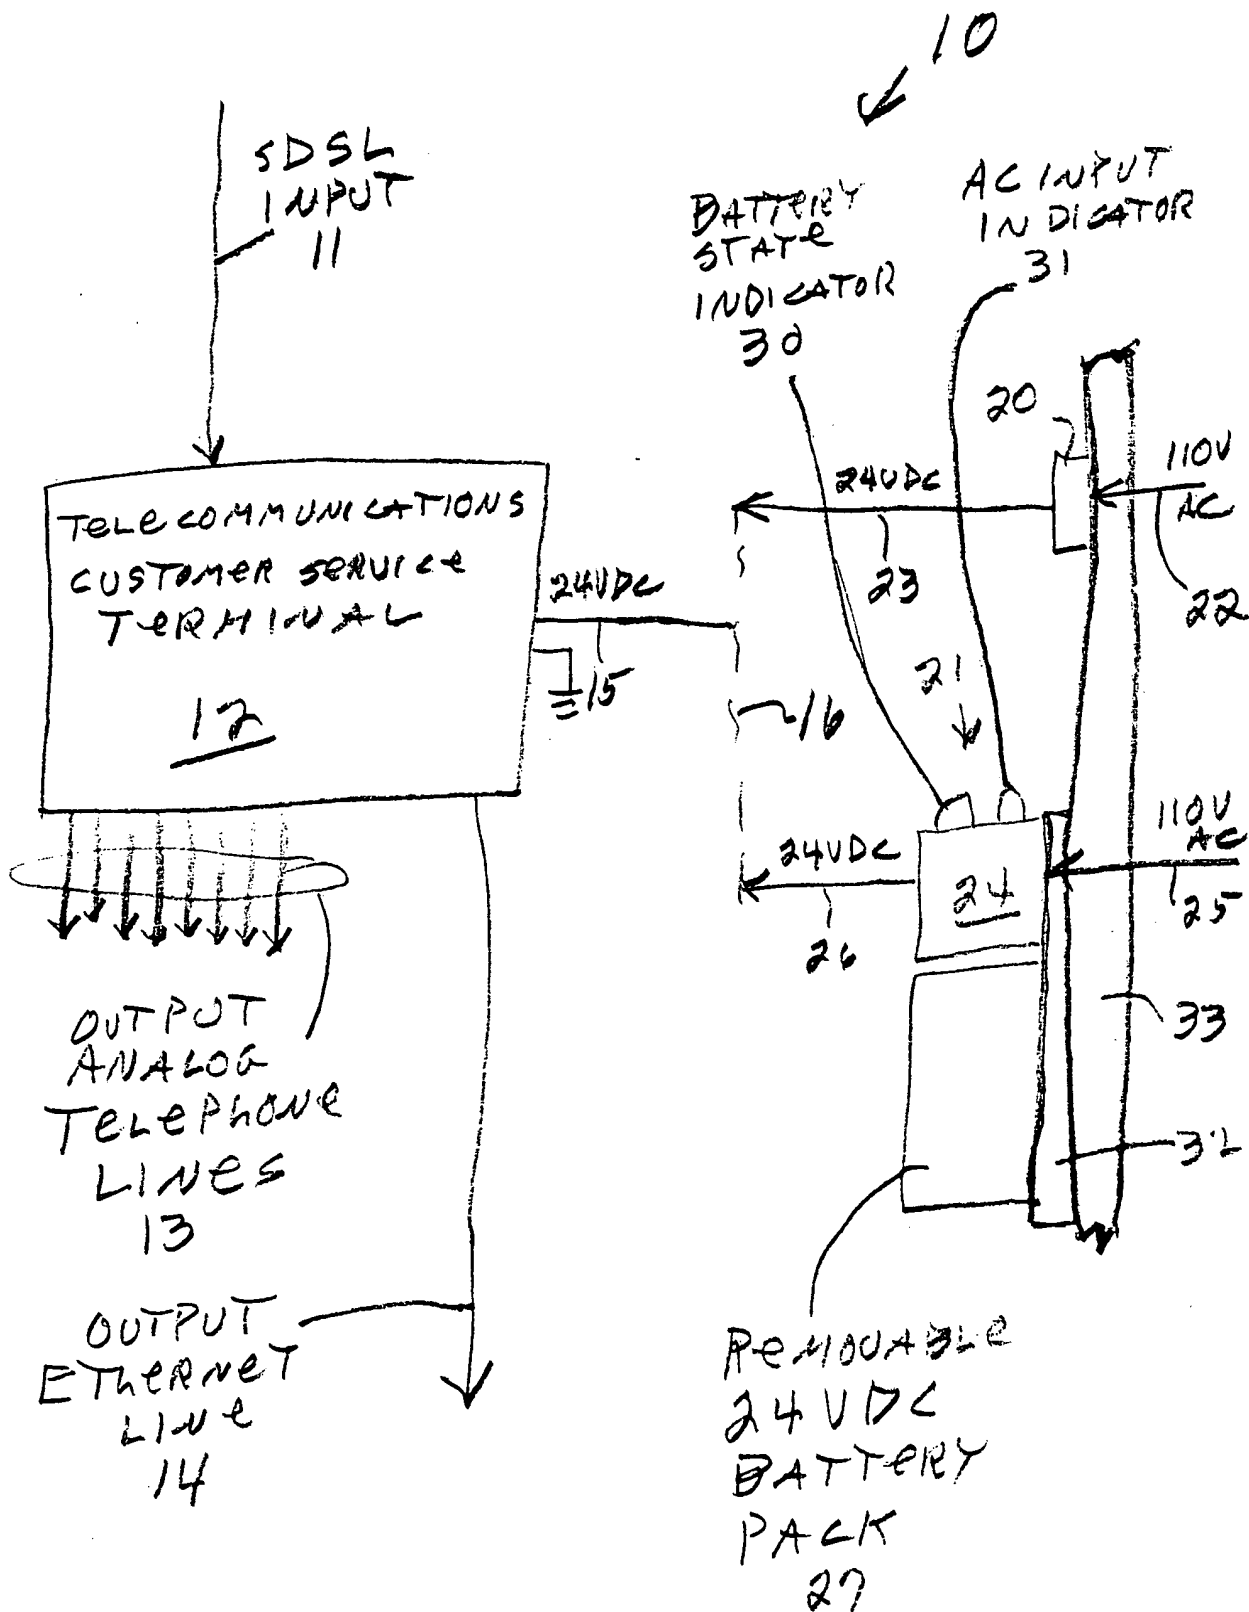 10
SDSL
INPUT
11
BATTERY
STATE
INDICATOR
30
AC INPUT
INDICATOR
31
20
110V
AC
22
24VDC
23
TELECOMMUNICATIONS
CUSTOMER SERVICE
TERMINAL
12
24VDC
15
16
21
24VDC
26
24
110V
AC
25
33
32
OUTPUT
ANALOG
TELEPHONE
LINES
13
OUTPUT
ETHERNET
LINE
14
REMOVABLE
24VDC
BATTERY
PACK
27